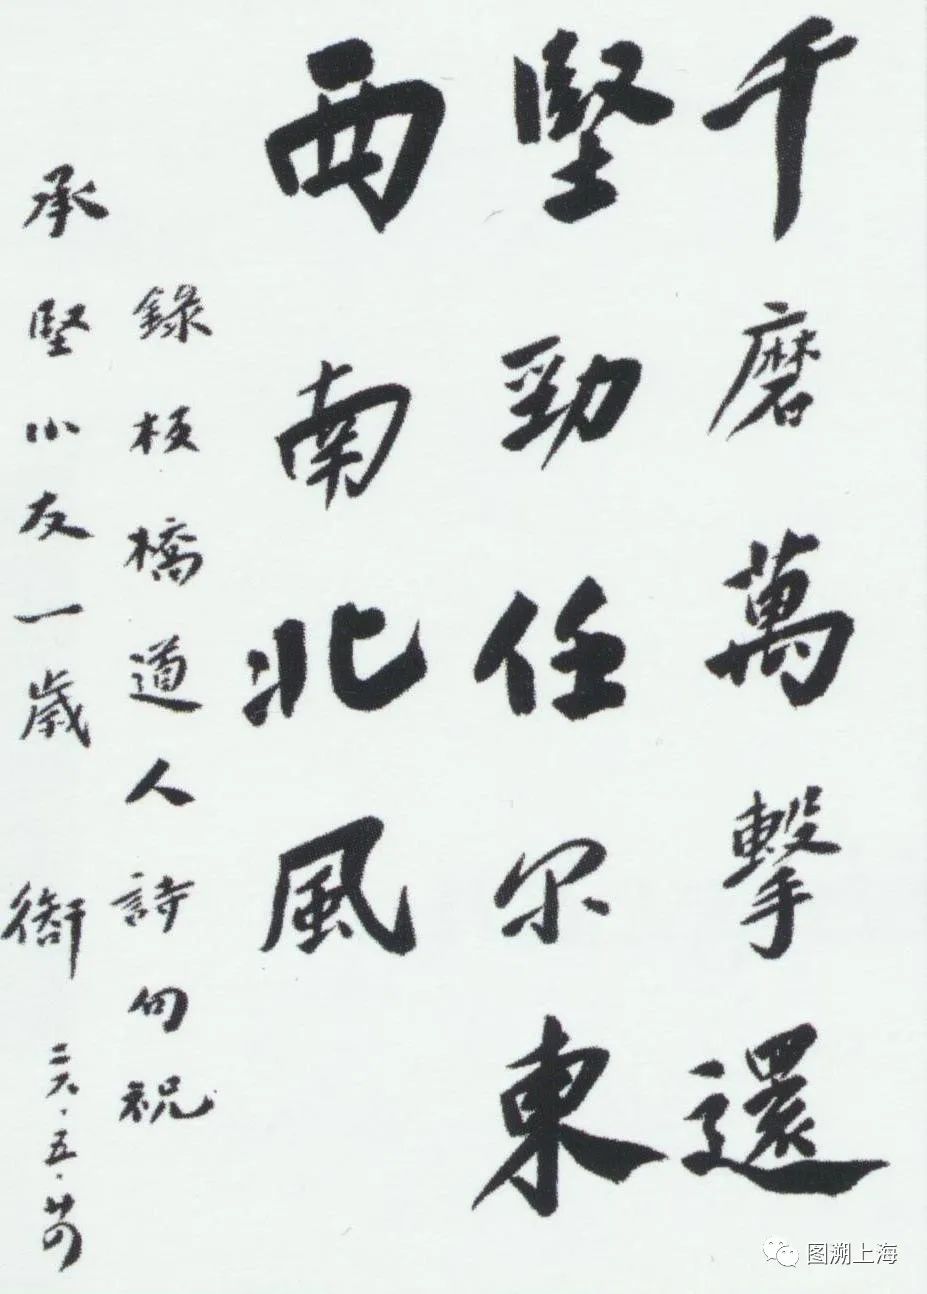 千磨萬擊還
堅勁任尔東
西南北風
錄板橋道人詩句祝
承堅小友一歲 衡 二六·五·廿四
图溯上海